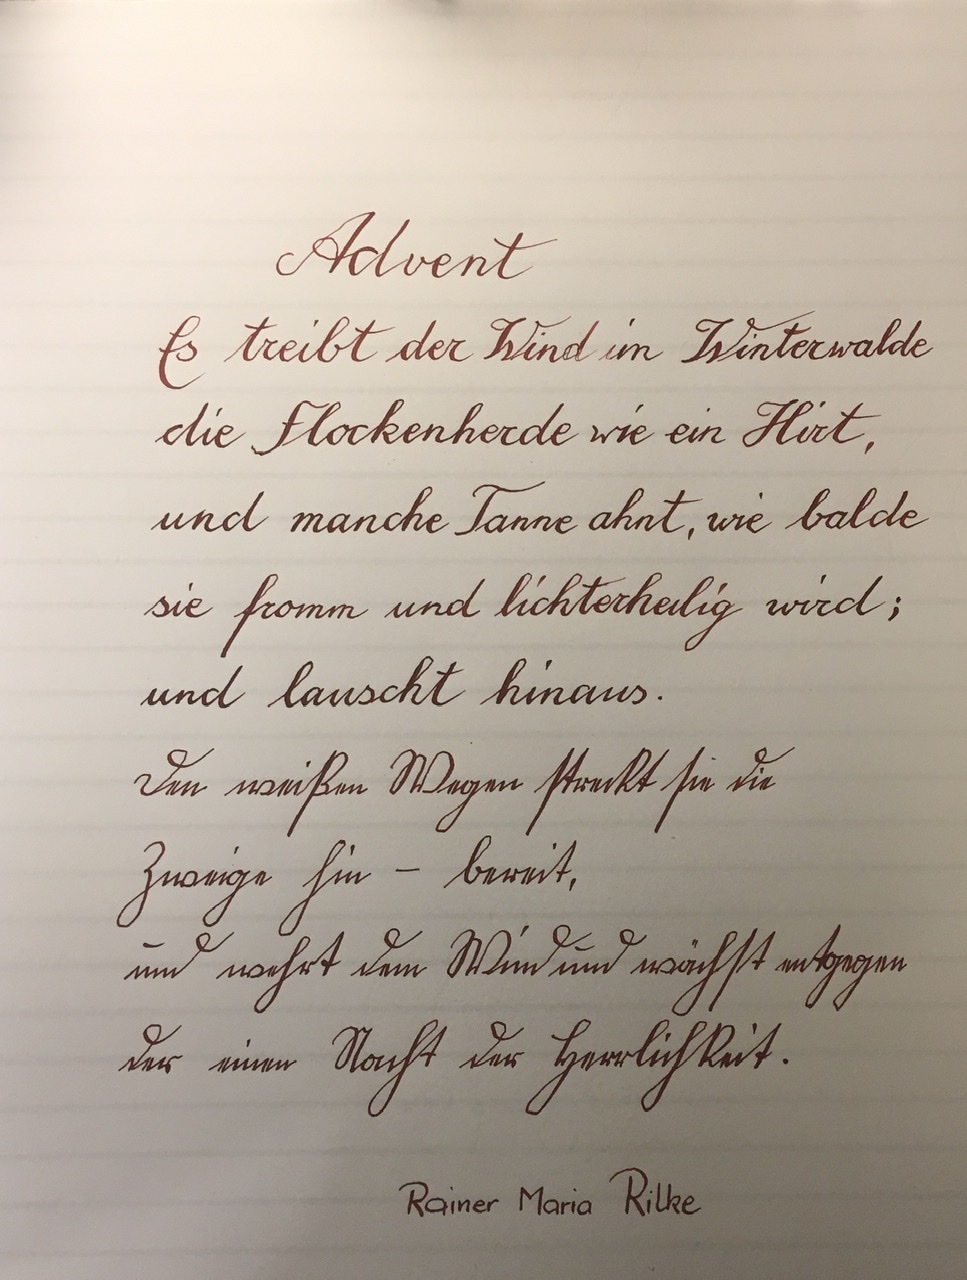 Advent
Es treibt der Wind im Winterwalde
die Flockenherde wie ein Hirt,
und manche Tanne ahnt, wie balde
sie fromm und lichterheilig wird;
und lauscht hinaus.
Den weißen Wegen streckt sie die
Zweige hin – bereit,
und wehrt dem Wind und wächst entgegen
der einen Nacht der Herrlichkeit.
Rainer Maria Rilke